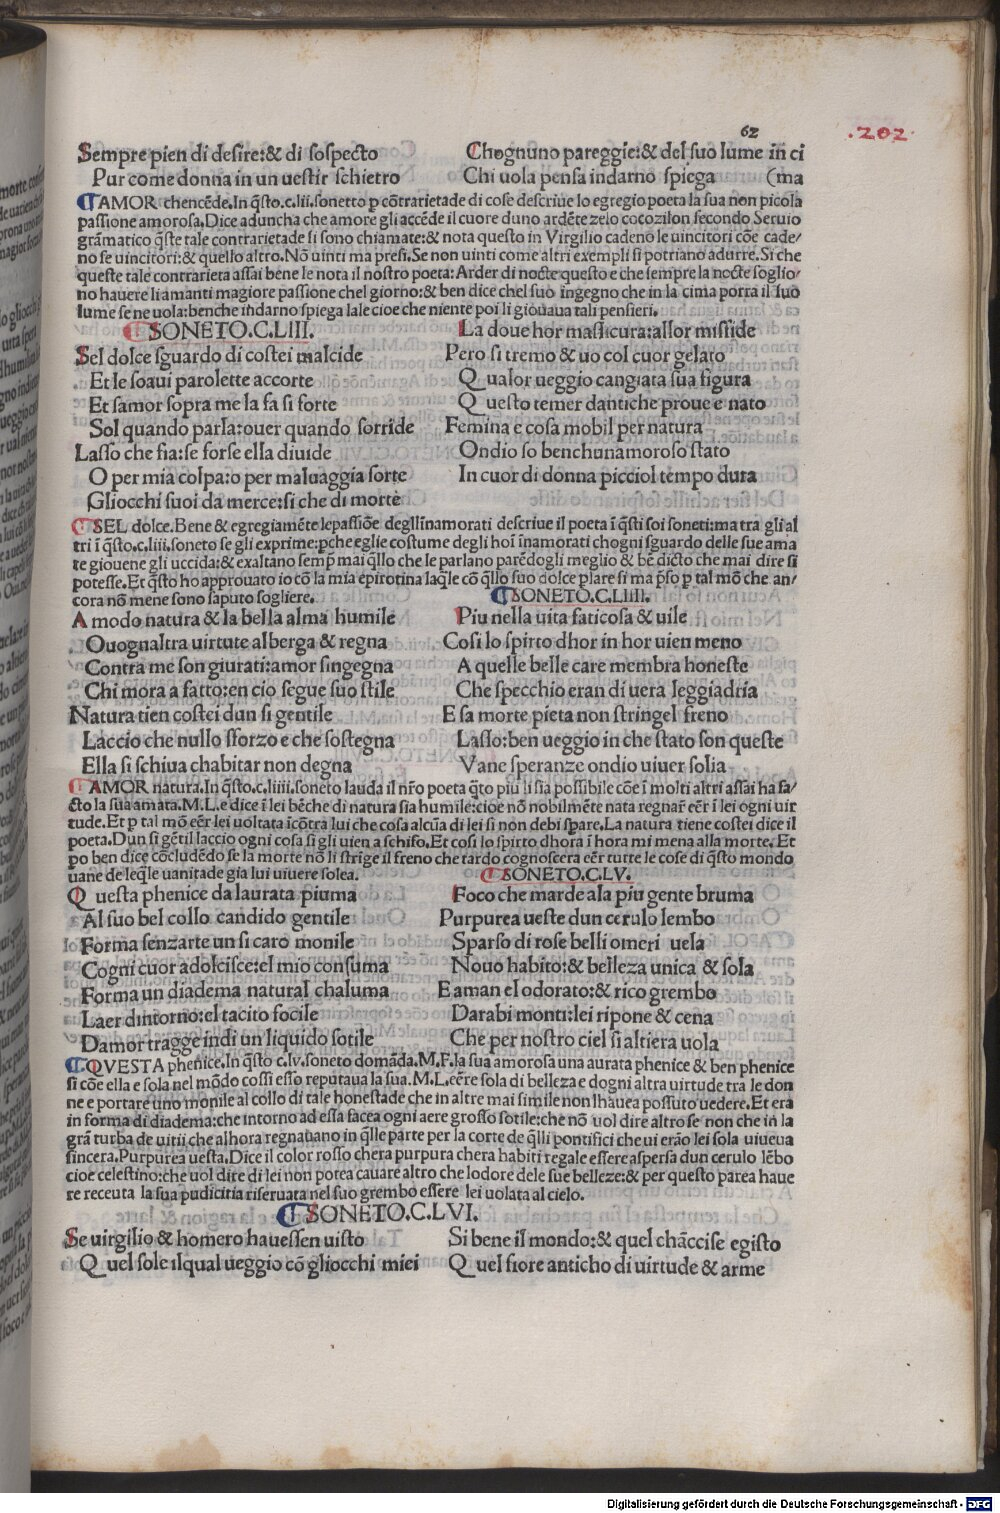 62
.202.
Sempre pien di desire:& di sospecto
Pur come donna in un uestir schietro
Chognuno pareggie:& del suo lume in ci
Chi uola pensa indarno spiega (ma
¶AMOR chencēde.In q̄sto.c.lii.sonetto p cōtrarietade di cose descriue lo egregio poeta la sua non picola
passione amorosa.Dice aduncha che amore gli accēde il cuore duno ardēte zelo cocozilon secondo Seruio
grāmatico q̄ste tale contrarietade si sono chiamate:& nota questo in Virgilio cadeno le uincitori cōe cade/
no se uincitori:& quello altro.Nō uinti ma presi.Se non uinti come altri exempli si potriano adurre.Si che
queste tale contrarieta assai bene le nota il nostro poeta:Arder di nocte questo e che sempre la nocte soglio/
no hauere li amanti magiore passione chel giorno:& ben dice chel suo ingegno che in la cima porra il suo
lume se ne uola:benche indarno spiega lale cioe che niente poi li giouaua tali pensieri.
¶SONETO.C.LIII.
Sel dolce sguardo di costei malcide
Et le soaui parolette accorte
Et samor sopra me la fa si forte
Sol quando parla:ouer quando sorride
Lasso che fia:se forse ella diuide
O per mia colpa:o per maluaggia sorte
Gliocchi suoi da merce:si che di morte
La doue hor massicura:allor misside
Pero si tremo & uo col cuor gelato
Qualor ueggio cangiata sua figura
Questo temer dantiche proue e nato
Femina e cosa mobil per natura
Ondio so benchunamoroso stato
In cuor di donna picciol tempo dura
¶SEL dolce.Bene & egregiamēte lepassiōe degllīnamorati descriue il poeta ī q̄sti soi soneti:ma tra gli al
tri ī q̄sto.c.liii.soneto se gli exprime:pche eglie costume degli hoī īnamorati chogni sguardo delle sue ama
te giouene gli uccida:& exaltano semp̄ mai q̄llo che le parlano parēdogli meglio & bē dicto che mai dire si
potesse.Et q̄sto ho approuato io cō la mia epirotina laq̄le cō q̄llo suo dolce plare si ma p̄so p tal mō che an/
cora nō mene sono saputo sogliere.
¶SONETO.C.LIIII.
Amodo natura & la bella alma humile
Ouognaltra uirtute alberga & regna
Contra me son giurati:amor singegna
Chi mora a fatto:en cio segue suo stile
Natura tien costei dun si gentile
Laccio che nullo sforzo e che sostegna
Ella si schiua chabitar non degna
Piu nella uita faticosa & uile
Cosi lo spirto dhor in hor uien meno
A quelle belle care membra honeste
Che specchio eran di uera leggiadria
E sa morte pieta non stringel freno
Lasso:ben ueggio in che stato son queste
Vane speranze ondio uiuer solia
¶AMOR natura.In q̄sto.c.liiii.soneto lauda il nr̄o poeta q̄to piu li sia possibile cōe ī molti altri assai ha fa/
cto la sua amata.M.L.e dice ī lei bēche di natura sia humile:cioe nō nobilmēte nata regnar̄ eēr ī lei ogni uir
tude.Et p tal mō eēr lei uoltata īcōtra lui che cosa alcūa di lei si non debi spare.La natura tiene costei dice il
poeta.Dun si gētil laccio ogni cosa si gli uien a schifo.Et cosi lo spirto dhora ī hora mi mena alla morte.Et
po ben dice cōcludēdo se la morte nō li strīge il freno che tardo cognoscera eēr tutte le cose di q̄sto mondo
uane de leq̄le uanitade gia lui uiuere solea.
¶SONETO.C.LV.
Questa phenice da laurata piuma
Al suo bel collo candido gentile
Forma senzarte un si caro monile
Cogni cuor adolcisce:el mio consuma
Forma un diadema natural chaluma
Laer dintorno:el tacito focile
Damor tragge indi un liquido sotile
Foco che marde ala piu gente bruma
Purpurea ueste dun cerulo lembo
Sparso di rose belli omeri uela
Nouo habito:& belleza unica & sola
E aman el odorato:& rico grembo
Darabi monti:lei ripone & cena
Che per nostro ciel si altiera uola
¶QVESTA phenice.In q̄sto c.lv.soneto domāda.M.F.la sua amorosa una aurata phenice & ben phenice
si cōe ella e sola nel mōdo cossi esso reputaua la sua.M.L.eēre sola di belleza e dogni altra uirtude tra le don
ne e portare uno monile al collo di tale honestade che in altre mai simile non lhauea possuto uedere.Et era
in forma di diadema:che intorno ad essa facea ogni aere grosso sotile:che nō uol dire altro se non che in la
grā turba de uitii che alhora regnauano in q̄lle parte per la corte de q̄lli pontifici che ui erāo lei sola uiueua
sincera.Purpurea uesta.Dice il color rosso chera purpura chera habiti regale essere aspersa dun cerulo lēbo
cioe celestino:che uol dire di lei non potea cauare altro che lodore dele sue belleze:& per questo parea haue
re receuta la sua pudicitia riseruata nel suo grembo essere lei uolata al cielo.
¶SONETO.C.LVI.
Se uirgilio & homero hauessen uisto
Quel sole ilqual ueggio cō gliocchi miei
Si bene il mondo:& quel chāccise egisto
Quel fiore anticho di uirtude & arme
Digitalisierung gefördert durch die Deutsche Forschungsgemeinschaft - DFG